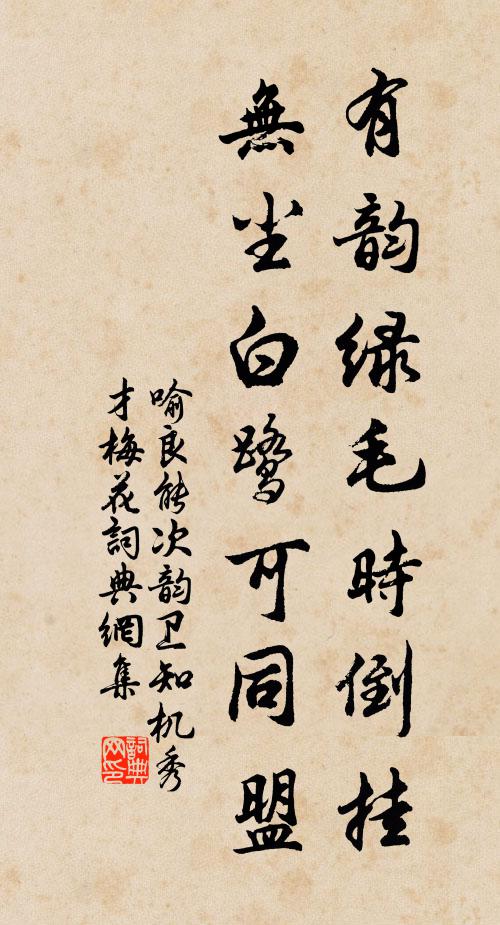 有韵绿毛時倒挂
無尘白鹭可同盟
喻良能次韵卫知机秀
才梅花詞典網集
詞典
网印